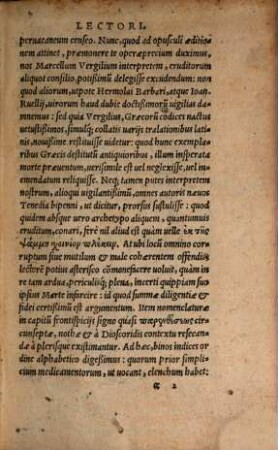 LECTORI.
peruacaneum censeo. Nunc, quod ad opusculi æditio-
nem attinet, præmonere te operæprecium duximus,
nos Marcellum Vergilium interpretem, eruditorum
aliquot consilio, potißimũ delegisse excudendum: non
quod aliorum, utpote Hermolai Barbari, atque Ioan.
Ruellij, uirorum haud dubie doctißimorũ uigilias da-
mnemus: sed quia Vergilius, Græcorũ codices nactus
uetustißimos, simulq́; collatis uarijs tralationibus lati-
nis, nonnulla restituisse uidetur: quod hunc exempla-
ribus Græcis destituti antiquioribus, illum insperata
morte præuentum, uerisimile est uel neglexisse, uel in-
emendatum reliquisse. Neq; tamen putes interpretem
nostrum, alioqui uigilantißimũ, omnes autori næuos
Tenedia bipenni, ut dicitur, prorsus sustulisse: quod
quidem absque uero archetypo aliquem, quantumuis
eruditum, conari, fere nihil aliud quam uelle ἐκ τῆς
At ubi locũ omnino cor-
ruptum siue mutilum & male cohærentem offendit,
lectorẽ potius asterisco cõmonefacere uoluit, quàm in
re tam ardua, periculisq́; plena, incerti quippiam suo-
ipsius Marte infarcire: id quod summæ diligentiæ &
fidei certißimũ est argumentum. Item nomenclaturæ
in capitũ frontispicijs signo quasi cir-
cunseptæ, nothæ & à Dioscoridis contextu resecan-
dæ à plerisque existimantur. Ad hæc, binos indices or
dine alphabetico digeßimus: quorum prior simpli-
cium medicamentorum, ut uocant, elenchum habet:
a 2